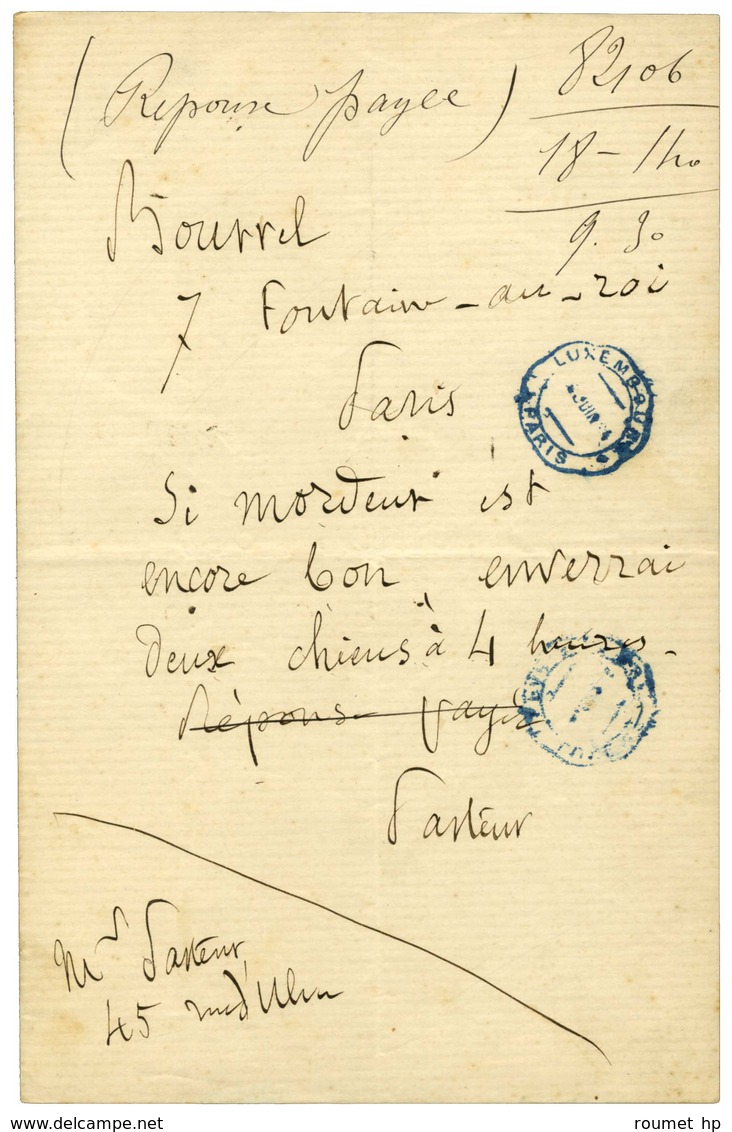 (Réponse payée)
82106
18 – 1 ho
9. 30
Bourrel
7 Fontaine-au-roi
Paris
LUXEMBOURG
JUIN
PARIS
Si mordeur est
encore bon, enverrai
deux chiens à 4 heures.
Réponse payée
Pasteur
Mr Pasteur,
45 rue d'Ulm
www.delcampe.net
roumet hp